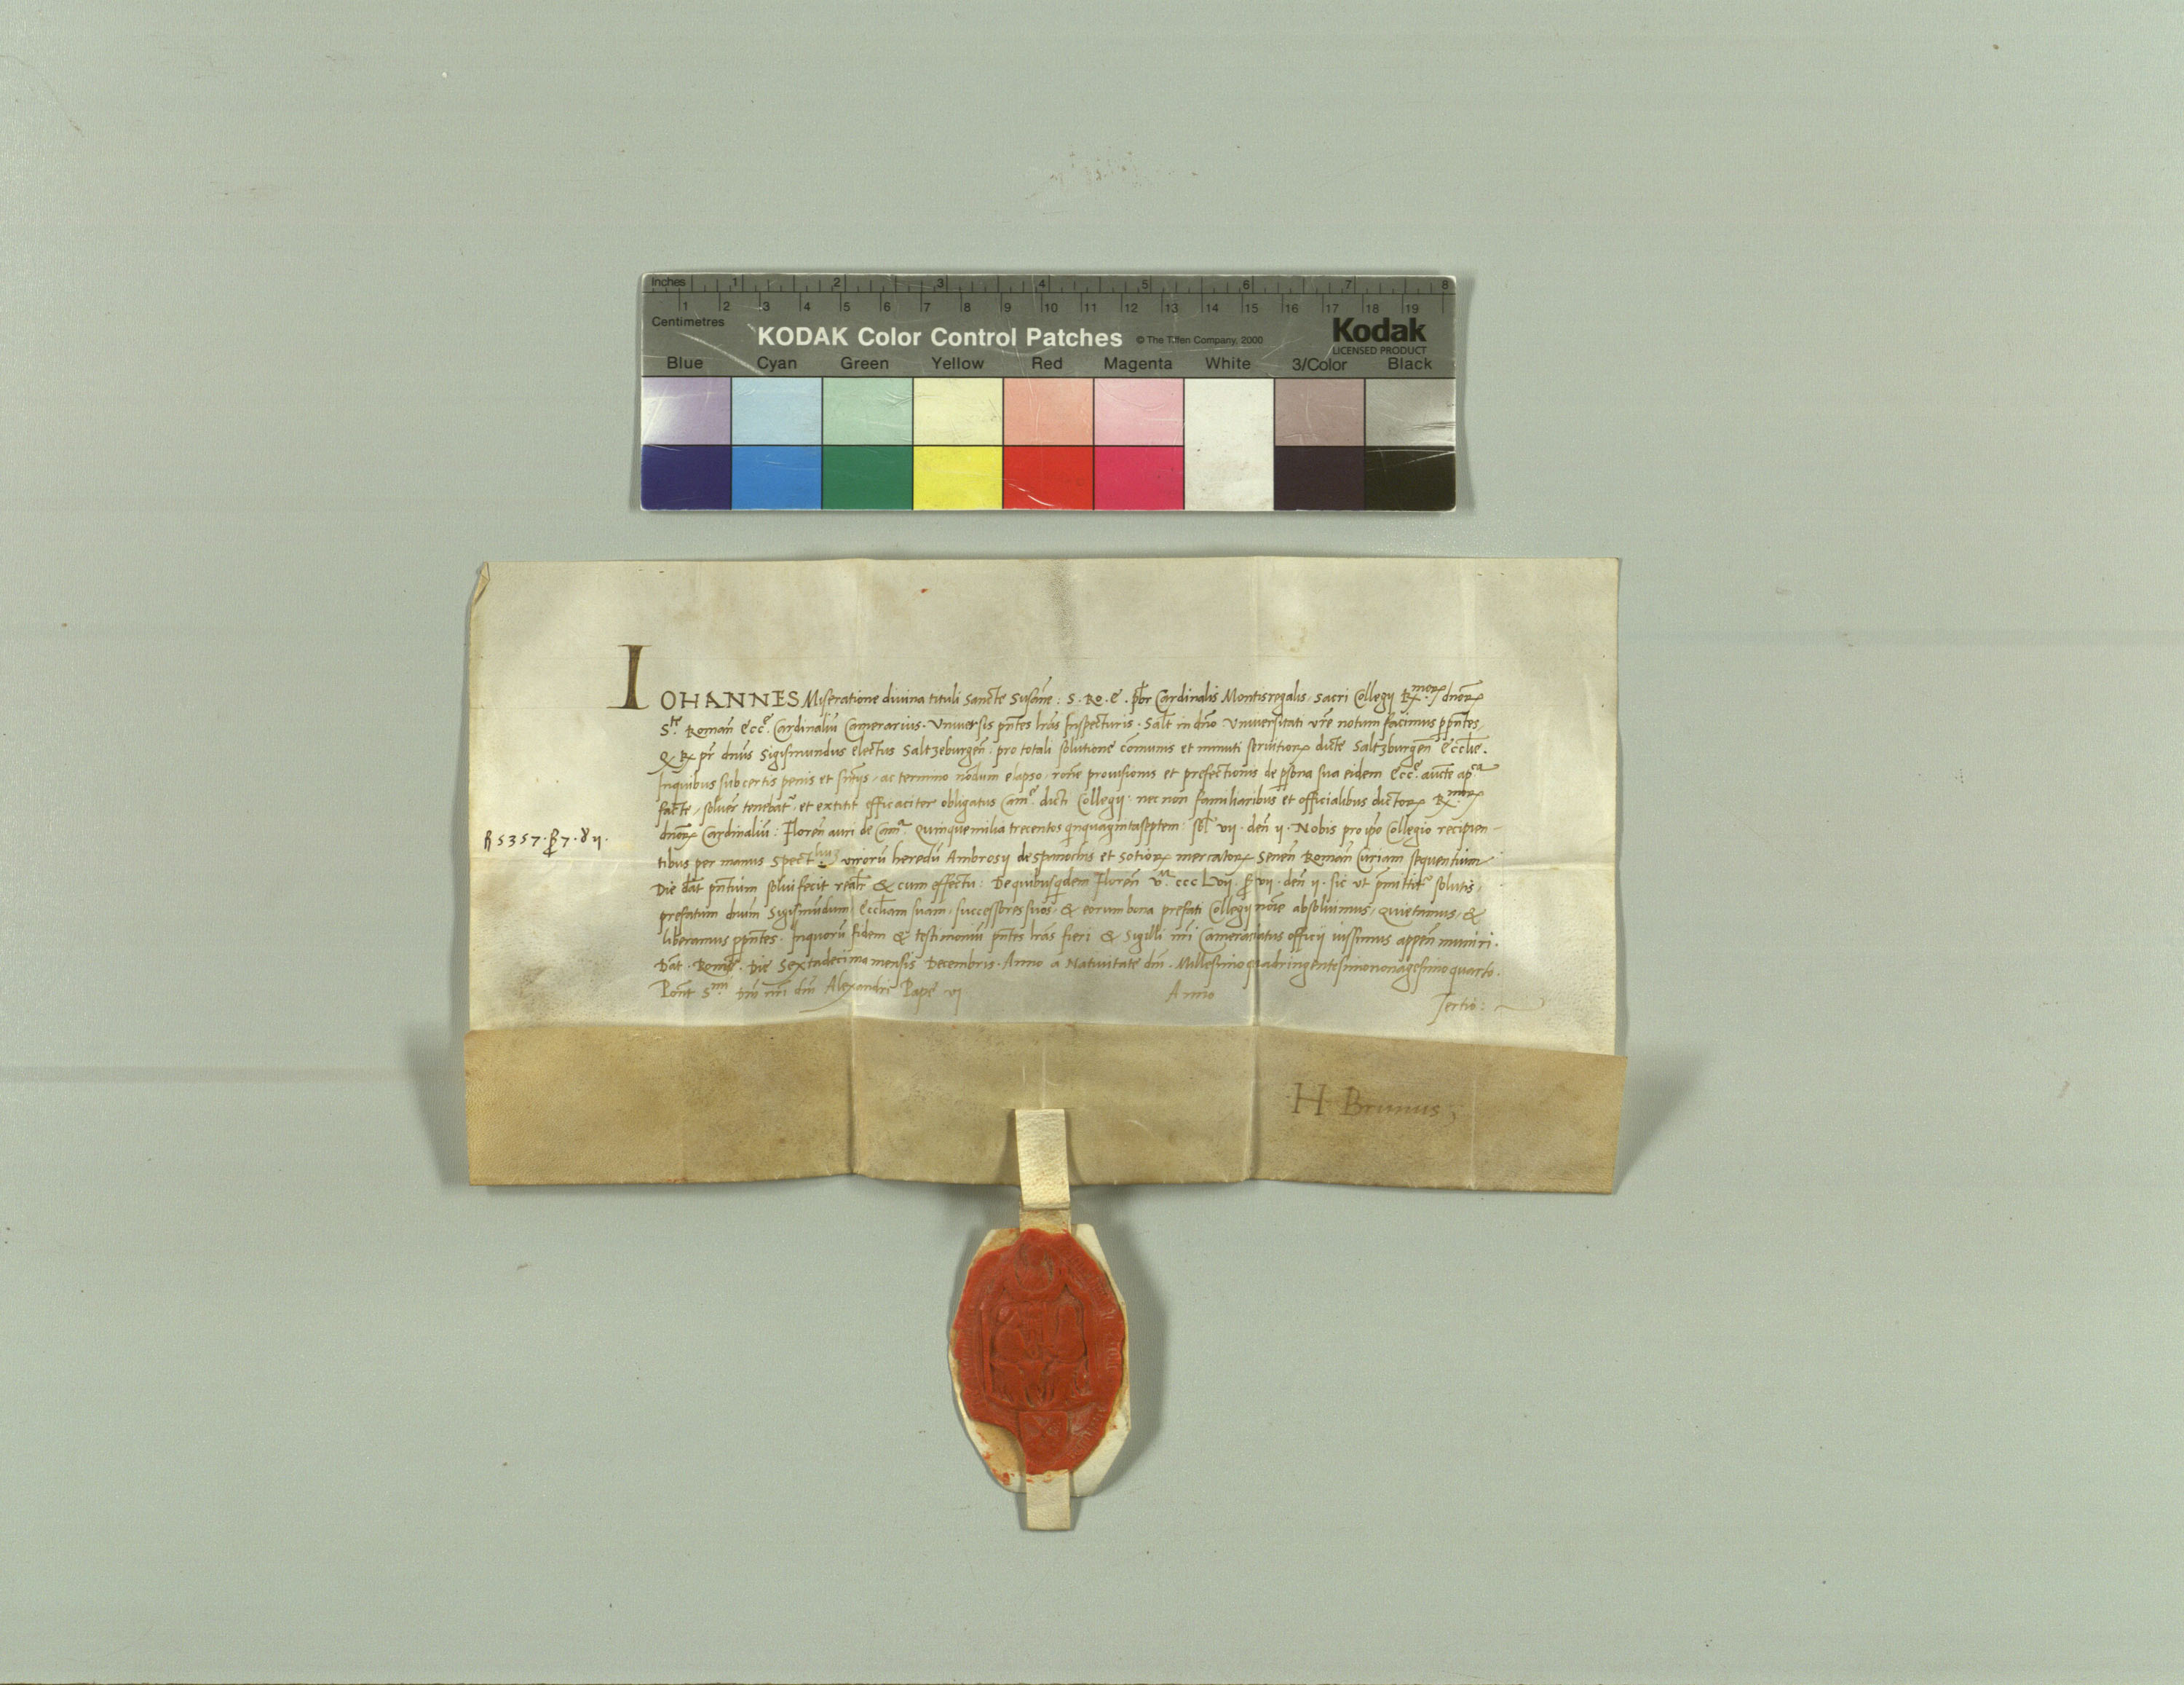 Inches 1 2 3 4 5 6 7 8
1 2 3 4 5 6 7 8 9 10 11 12 13 14 15 16 17 18 19
Centimetres
KODAK Color Control Patches © The Tiffen Company, 2000 Kodak
LICENSED PRODUCT
Blue Cyan Green Yellow Red Magenta White 3/Color Black
IOHANNES Miseratione divina tituli Sancte Susāne : S . Ro . E . pr̄br Cardinalis Montisregalis, Sacri Collegij Rmorꝝ dnorꝝ
Ste Romañ Ecce Cardinaliū Camerarius. Universis pn̄tes lr̄as Inspecturis. Salt̄ in dn̄o Universitati vr̄e notum facimus ꝑpn̄tes,
Q Rx pr̄ dn̄us Sigismundus electus Saltzeburgeñ: pro totali solutione comunis et minuti servitiorꝝ dicte Saltzburgeñ Eccl̄ie.
Inquibus sub certis penis et sn̄ijs, ac termino nōdum elapso, rōne provisionis et prefectionis de ꝑsona sua eidem Ecce aucte apca
facte, solver tenebatr et extitit efficaciter obligatus Came dicti Collegij. nec non familiaribus et officialibus dictorꝝ Rmorꝝ
dnorꝝ Cardinaliū: Floreñ auri de Cama Quinquemilia trecentos qinquagintaseptem: sol̄ vij. deñ ij. Nobis pro ip̄o Collegio recipien-
fl 5357. ꝑ 7. ꝺ ij.
tibus per manus Spectliuʒ virorū heredū Ambrosij de spanochis et sotiorꝝ mercatorꝝ Seneñ Romañ Curiam sequentium
Die dat̄ pn̄tium solvi fecit realr̄ & cum effectu: De quibus qdem Floreñ Vm ccc Lvij. ꝑ vij. deñ ij. sic ut p̄mittitr solutis,
prefatum dnūm Sigismūdum Eccl̄iam suam, successores suos, & eorum bona prefati Collegij noīe absolvimus, Quietamus, &
liberamus ꝑpn̄tes. Inquorū fidem & testimoniū pn̄tes lr̄as fieri & Sigilli nr̄i Camerariatus officij iussimus appeñ muniri.
Dat̄. Rome. Die Sextadecima mensis Decembris. Anno a Nativitate dn̄i. Millesimoquadringentesimononagesimoquarto.
Pont̄ Smi dn̄i nr̄i dn̄i Alexandri Pape vj Anno Tertio:
H Brunus;